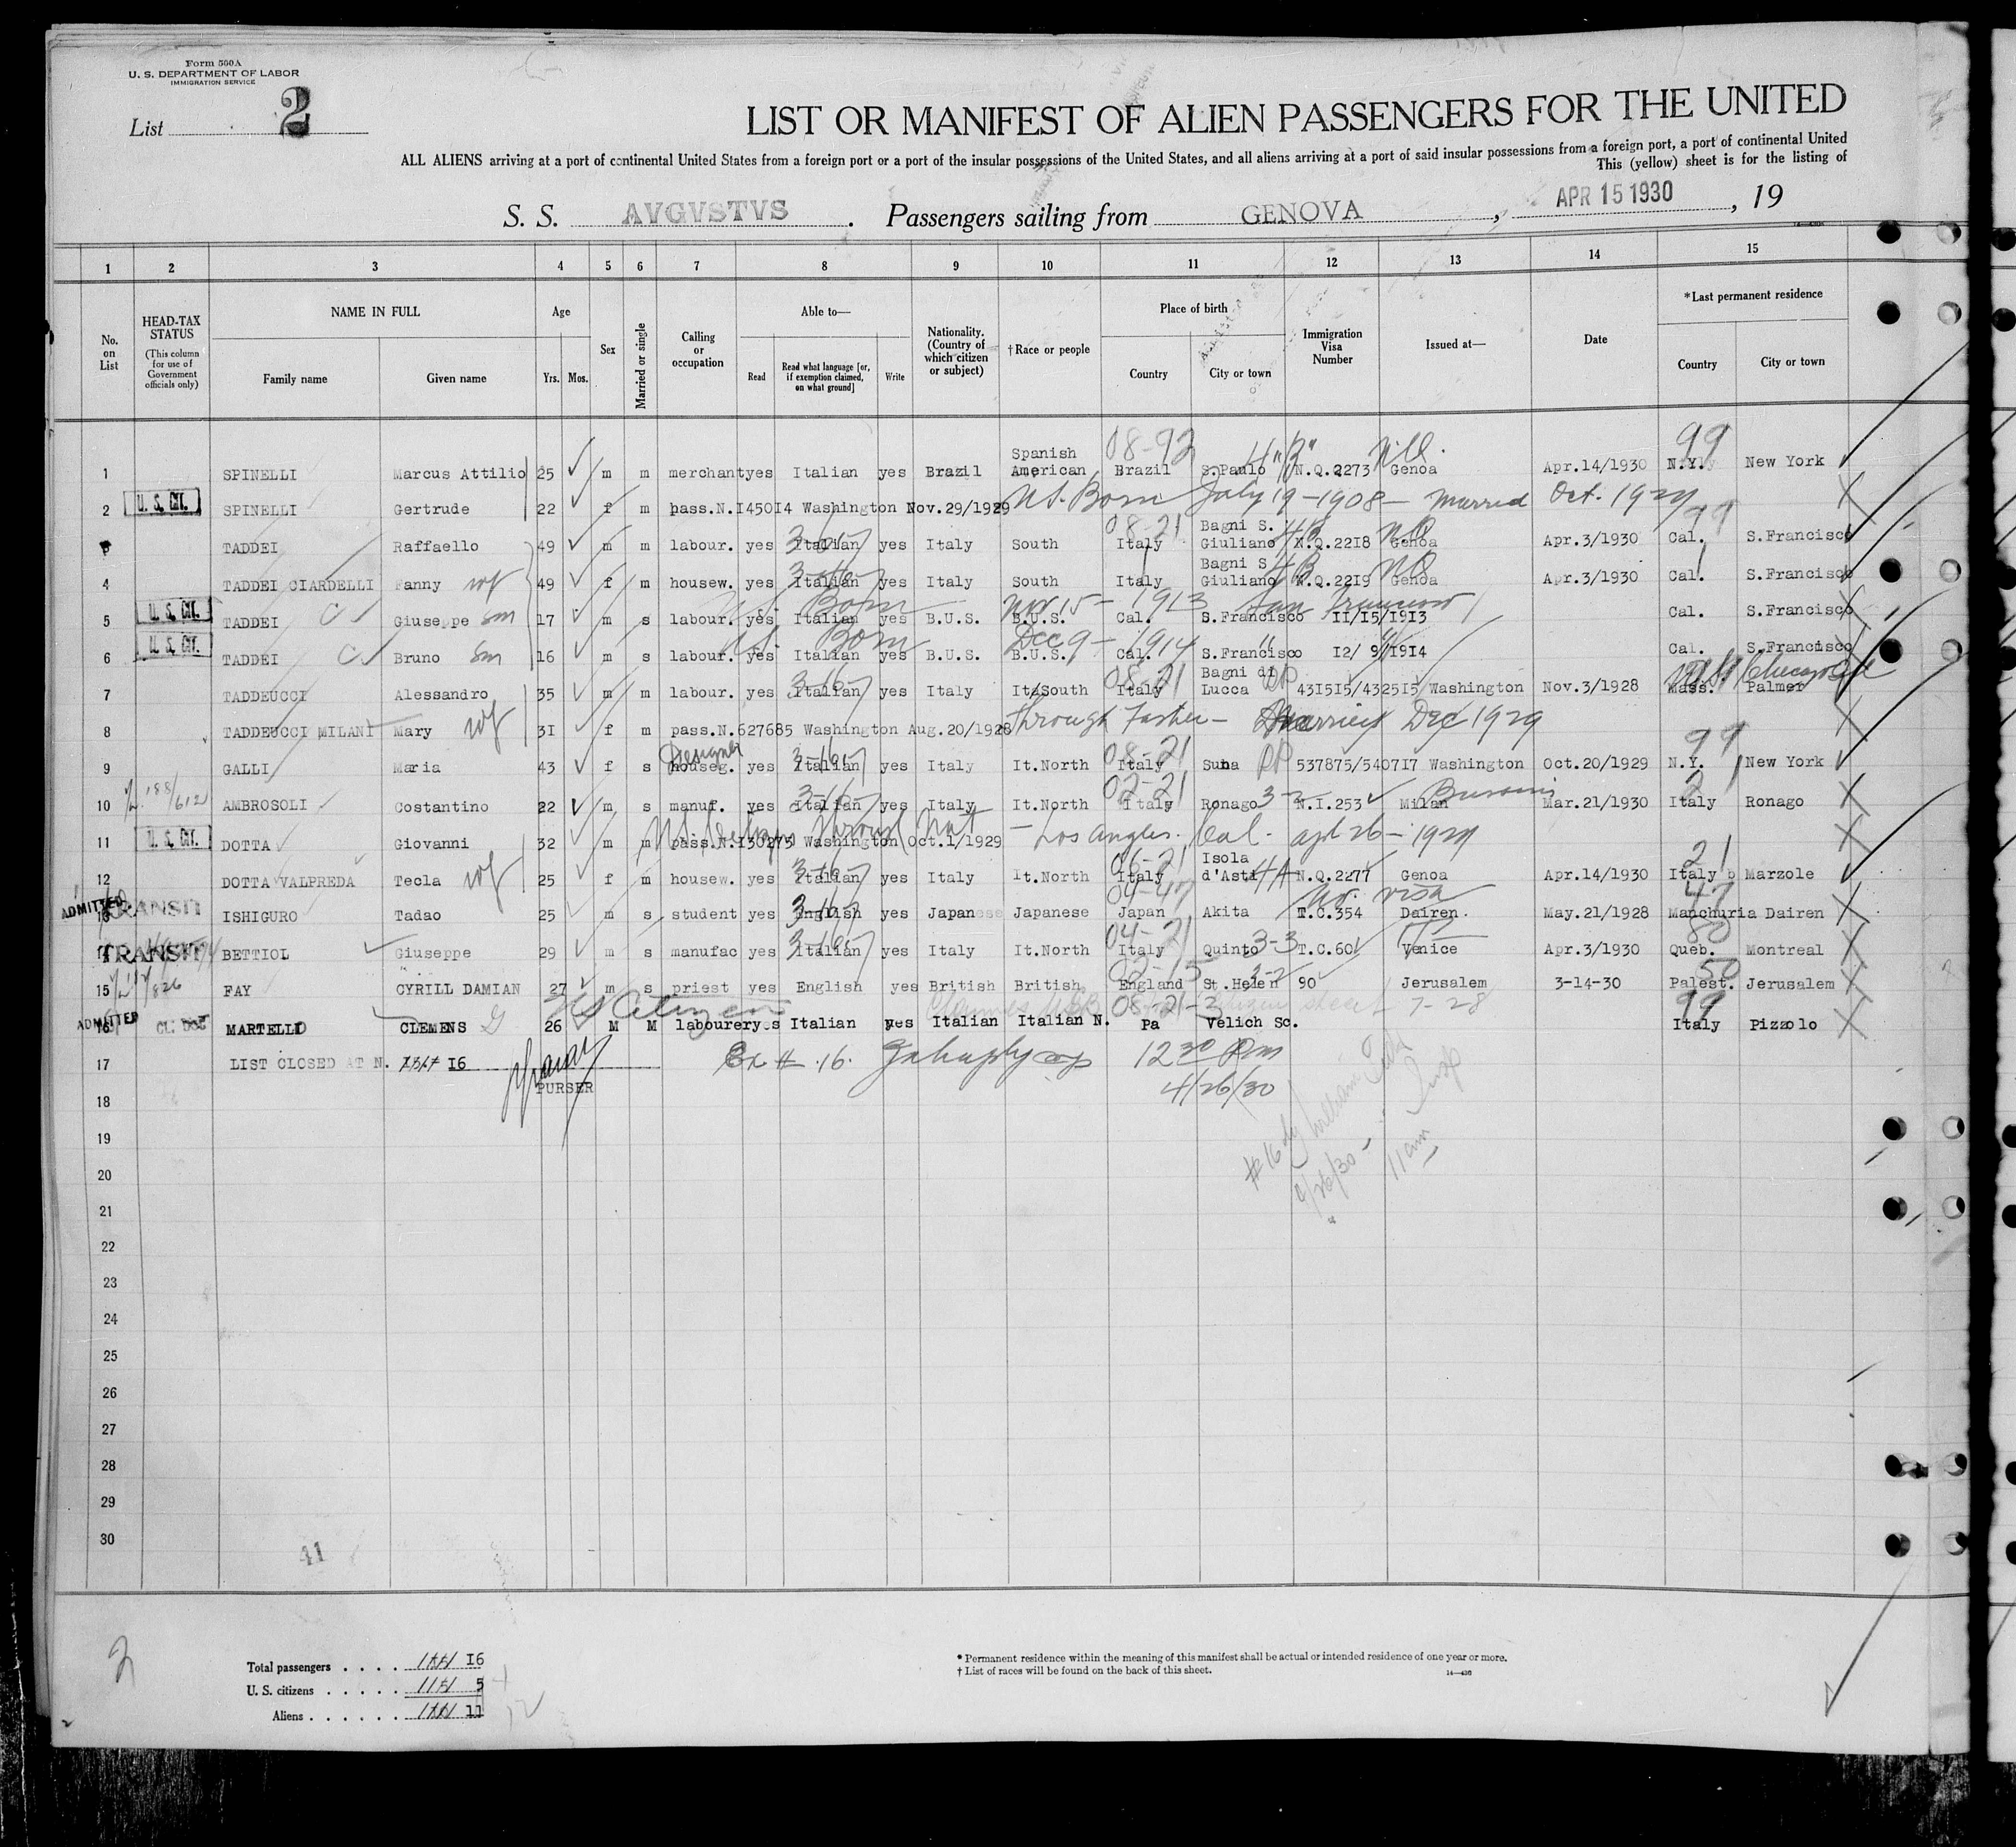 Form 500A
U. S. DEPARTMENT OF LABOR
IMMIGRATION SERVICE
List 2
LIST OR MANIFEST OF ALIEN PASSENGERS FOR THE UNITED
ALL ALIENS arriving at a port of continental United States from a foreign port or a port of the insular possessions of the United States, and all aliens arriving at a port of said insular possessions from a foreign port, a port of continental United
This (yellow) sheet is for the listing of
S. S. AVGVSTVS. Passengers sailing from GENOVA, APR 15 1930, 19
1 2 3 4 5 6 7 8 9 10 11 12 13 14 15
No. on List
HEAD-TAX STATUS
(This column for use of Government officials only)
NAME IN FULL
Family name Given name
Age
Yrs. Mos.
Sex
Married or single
Calling or occupation
Able to—
Read
Read what language [or, if exemption claimed, on what ground]
Write
Nationality. (Country of which citizen or subject)
†Race or people
Place of birth
Country City or town
Immigration Visa Number
Issued at—
Date
*Last permanent residence
Country City or town
08-92 4"B" 99
1 SPINELLI Marcus Attilio 25 m m merchant yes Italian yes Brazil Spanish American Brazil S.Paulo N.Q.2273 Genoa Apr.14/1930 N.Y. New York
U. S. CIT.
2 SPINELLI Gertrude 22 f m pass.N.145014 Washington Nov.29/1929 U.S. Born July 19-1908- Married Oct. 1929
08-21 99
TADDEI Raffaello 49 m m labour. yes Italian yes Italy South Italy Bagni S. Giuliano N.Q.2218 Genoa Apr.3/1930 Cal. S.Francisco
4 TADDEI CIARDELLI Fanny wf 49 f m housew. yes Italian yes Italy South Italy Bagni S Giuliano N.Q.2219 Genoa Apr.3/1930 Cal. S.Francisco
U. S. CIT. U.S. Born Nov 15- 1913 San Francisco
5 TADDEI Giuseppe Sm 17 m s labour. yes Italian yes B.U.S. B.U.S. Cal. S.Francisco 11/15/1913 Cal. S.Francisco
U. S. CIT. U.S. Born Dec 9- 1914 "
6 TADDEI Bruno Sm 16 m s labour. yes Italian yes B.U.S. B.U.S. Cal. S.Francisco 12/ 9/1914 Cal. S.Francisco
08-21 RP
7 TADDEUCCI Alessandro 35 m m labour. yes Italian yes Italy ItaSouth Italy Bagni di Lucca 431515/432515 Washington Nov.3/1928 Mass. Palmer
8 TADDEUCCI MILANI Mary wf 31 f m pass.N.627685 Washington Aug.20/1928 through Father- Married Dec 1929
Designer 08-21 RP 99
9 GALLI Maria 43 f s houseg. yes Italian yes Italy It.North Italy Suna 537875/540717 Washington Oct.20/1929 N.Y. New York
02-21 3-2
10 AMBROSOLI Costantino 22 m s manuf. yes Italian yes Italy It.North Italy Ronago N.I.253 Milan Mar.21/1930 Italy Ronago
U. S. CIT.
11 DOTTA Giovanni 32 m m pass.N.130275 Washington Oct.1/1929 - Los Angeles. Cal. apl 26-1929
06-21 4A 21
12 DOTTA VALPREDA Tecla wf 25 f m housew. yes Italian yes Italy It.North Italy Isola d'Asti N.Q.2277 Genoa Apr.14/1930 Italy Marzole
ADMITTED TRANSIT 04-47 visa 47
ISHIGURO Tadao 25 m s student yes English yes Japanese Japanese Japan Akita T.C.354 Dairen. May.21/1928 Manchuria Dairen
TRANSIT 04-21 3-3 80
BETTIOL Giuseppe 29 m s manufac yes Italian yes Italy It.North Italy Quinto T.C.60 Venice Apr.3/1930 Queb. Montreal
02-15 3-2 50
15 FAY CYRILL DAMIAN 27 m s priest yes English yes British British England St.Helen 90 Jerusalem 3-14-30 Palest. Jerusalem
ADMITTED US Citizen 08-21-2 7-28 99
16 MARTELLI CLEMENS G 26 M M labourer yes Italian yes Italian Italian N. Pa Velich Sc. Italy Pizzolo
17 LIST CLOSED AT N. 16
PURSER
Ex # 16. 12 30 Pm
4/26/30
18
19
20
21
22
23
24
25
26
27
28
29
30
41
2
Total passengers . . . . 16
U. S. citizens . . . . . 5
Aliens . . . . . . 11
* Permanent residence within the meaning of this manifest shall be actual or intended residence of one year or more.
† List of races will be found on the back of this sheet.